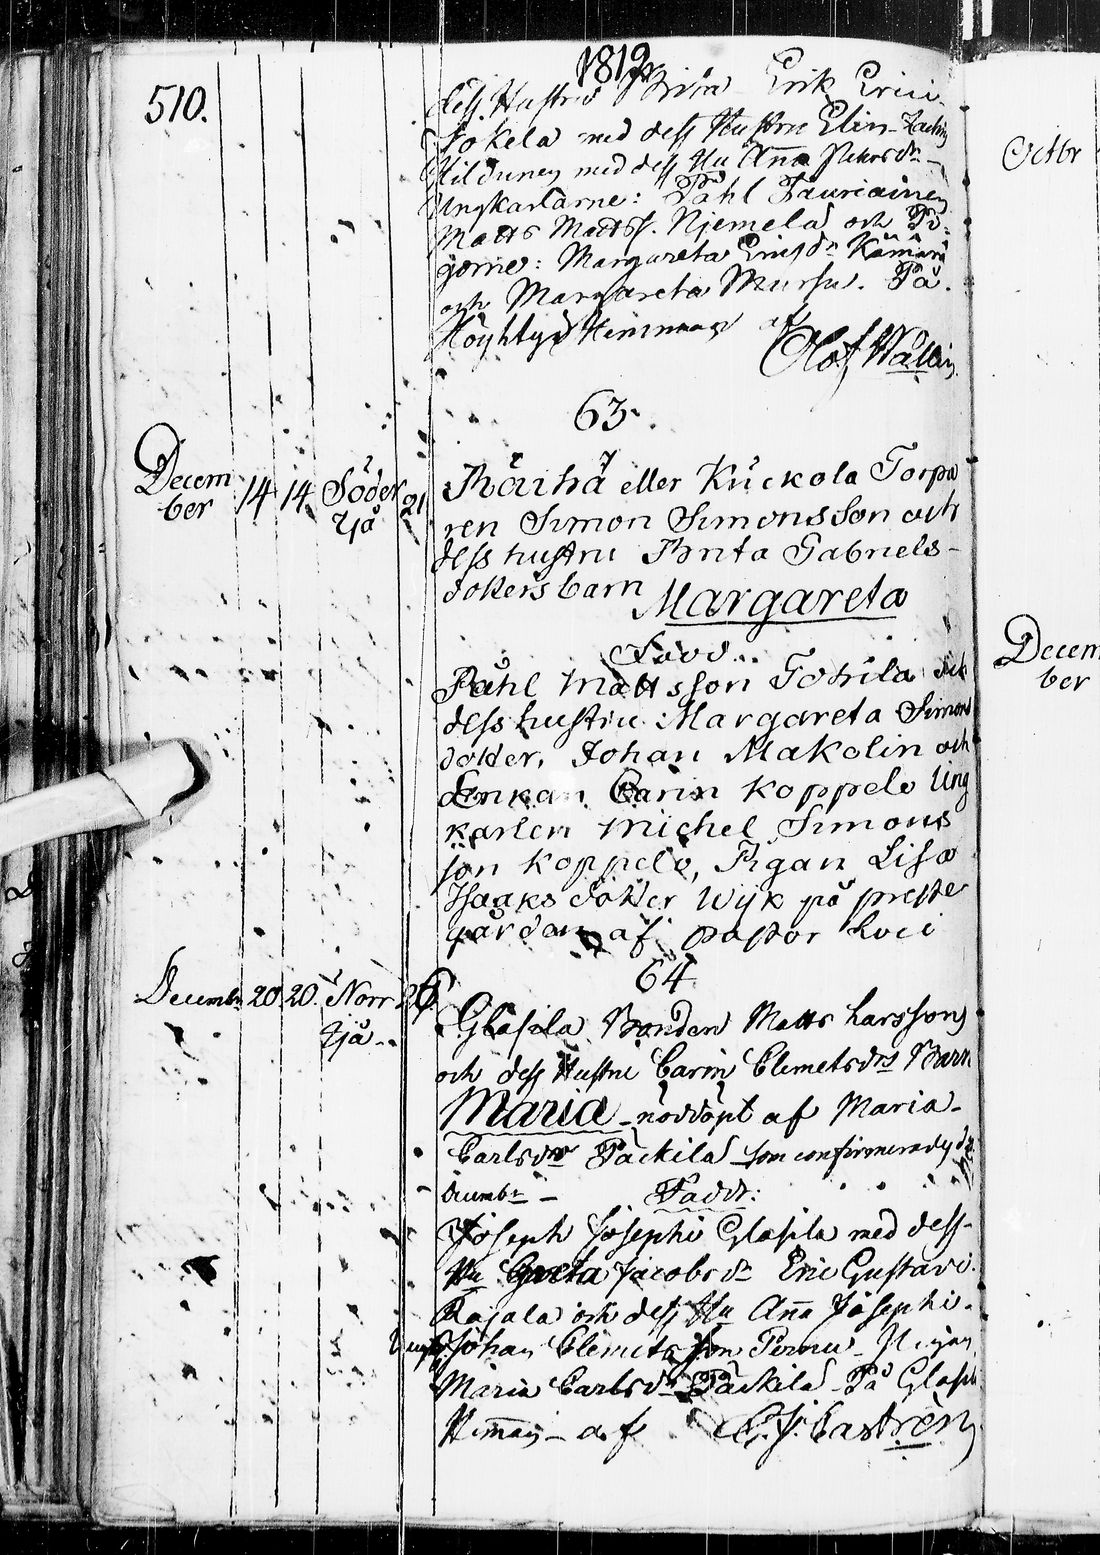 1812
510.
dess Hustru Brita Erik Erici
Jokela med dess Hustru Elin
med dess Hu Anna Petersdr
Ungkarlarne: Påhl Tauriainen
Matts Matss. Njemelä och Pi-
gorne: Margareta Ericsdr Kämärä
och Margareta Mursu. På
Höyhtyä Hemman af
Olof Wallin
63.
Decem
ber 14 14 Söder
sjö 21
Räihä eller Kuckola Torpa
ren Simon Simonsson och
dess hustru Brita Gabriels-
dotters barn Margareta
Favd..
Påhl Mattsson Tohila och
dess hustru Margareta Simons
dotter, Johan Makolin och
Enkan Carin Koppelo Ung
karlen Michel Simons
son Koppelo, Pigan Lisa
Isaaks dotter Wijk på preste
gården af pastor Loci
64
Decembr 20 20 Norr 26
sjö
Glasila Bonden Matts Larsson
och dess Hustru Carin Clemetsdrs Barn
Maria nöddöpt af Maria
Carlsdr Päckilä som confirmerades d.
Decembr
Faddr:
Joseph Josephi Glasila med dess
Hu Greta Jacobsdr Eric Gustavi
Rajala och dess Hu Anna Josephi
Johan Clemetsson Pernu Pigan
Maria Carlsdr Päckilä På Glasila
Hemman af E. J. Castrén
Octbr
Decem
ber